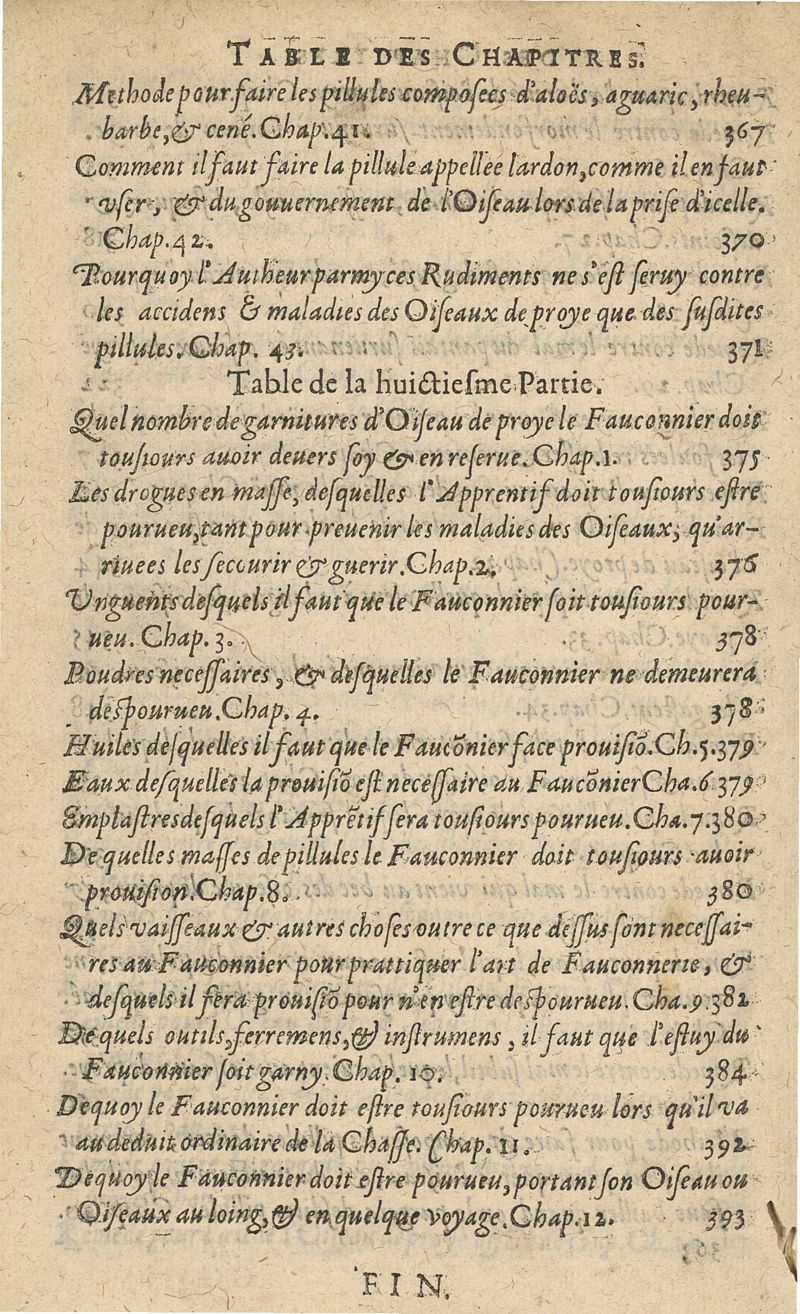 TABLE DES CHAPITRES.
Methode pour faire les pillules composees d'aloës, aguaric, rheu-
barbe, & cené. Chap. 41. 367
Comment il faut faire la pillule appellee lardon, comme il en faut
vser, & du gouuernement de l'Oiſeau lors de la priſe d'icelle.
Chap. 42. 370
Pourquoy l'Autheur parmy ces Rudiments ne s'eſt ſeruy contre
les accidens & maladies des Oiſeaux de proye que des ſuſdites
pillules. Chap. 43. 371
Table de la huictieſme Partie.
Quel nombre de garnitures d'Oiſeau de proye le Fauconnier doit
touſiours auoir deuers ſoy & en reſerue. Chap. 1. 375
Les drogues en maſſe, deſquelles l'Apprentif doit touſiours eſtre
pourueu, tant pour preuenir les maladies des Oiſeaux, qu'ar-
riuees les ſecourir & guerir. Chap. 2. 376
Vnguents deſquels il faut que le Fauconnier ſoit touſiours pour-
ueu. Chap. 3. 378
Poudres neceſſaires, & deſquelles le Fauconnier ne demeurera
deſpourueu. Chap. 4. 378
Huiles deſquelles il faut que le Faucõnier face prouiſiõ. Ch. 5. 379
Eaux deſquelles la prouiſiõ eſt neceſſaire au Faucõnier Cha. 6 379
Emplaſtres deſquels l'Apprẽtif ſera touſiours pourueu. Cha. 7. 380
De quelles maſſes de pillules le Fauconnier doit touſiours auoir
prouiſion. Chap. 8. 380
Quels vaiſſeaux & autres choſes outre ce que deſſus ſont neceſſai-
res au Fauconnier pour prattiquer l'art de Fauconnerie, &
deſquels il fera prouiſiõ pour n'en eſtre deſpourueu. Cha. 9. 382
De quels outils, ferremens, & inſtrumens, il faut que l'eſtuy du
Fauconnier ſoit garny. Chap. 10. 384
Dequoy le Fauconnier doit eſtre touſiours pourueu lors qu'il va
au deduit ordinaire de la Chaſſe. Chap. 11. 392
Dequoy le Fauconnier doit eſtre pourueu, portant ſon Oiſeau ou
Oiſeaux au loing, & en quelque voyage. Chap. 12. 393
FIN.